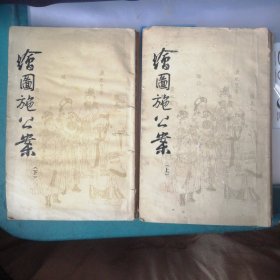 繪圖施公案
(下)
繪圖施公案
(上)